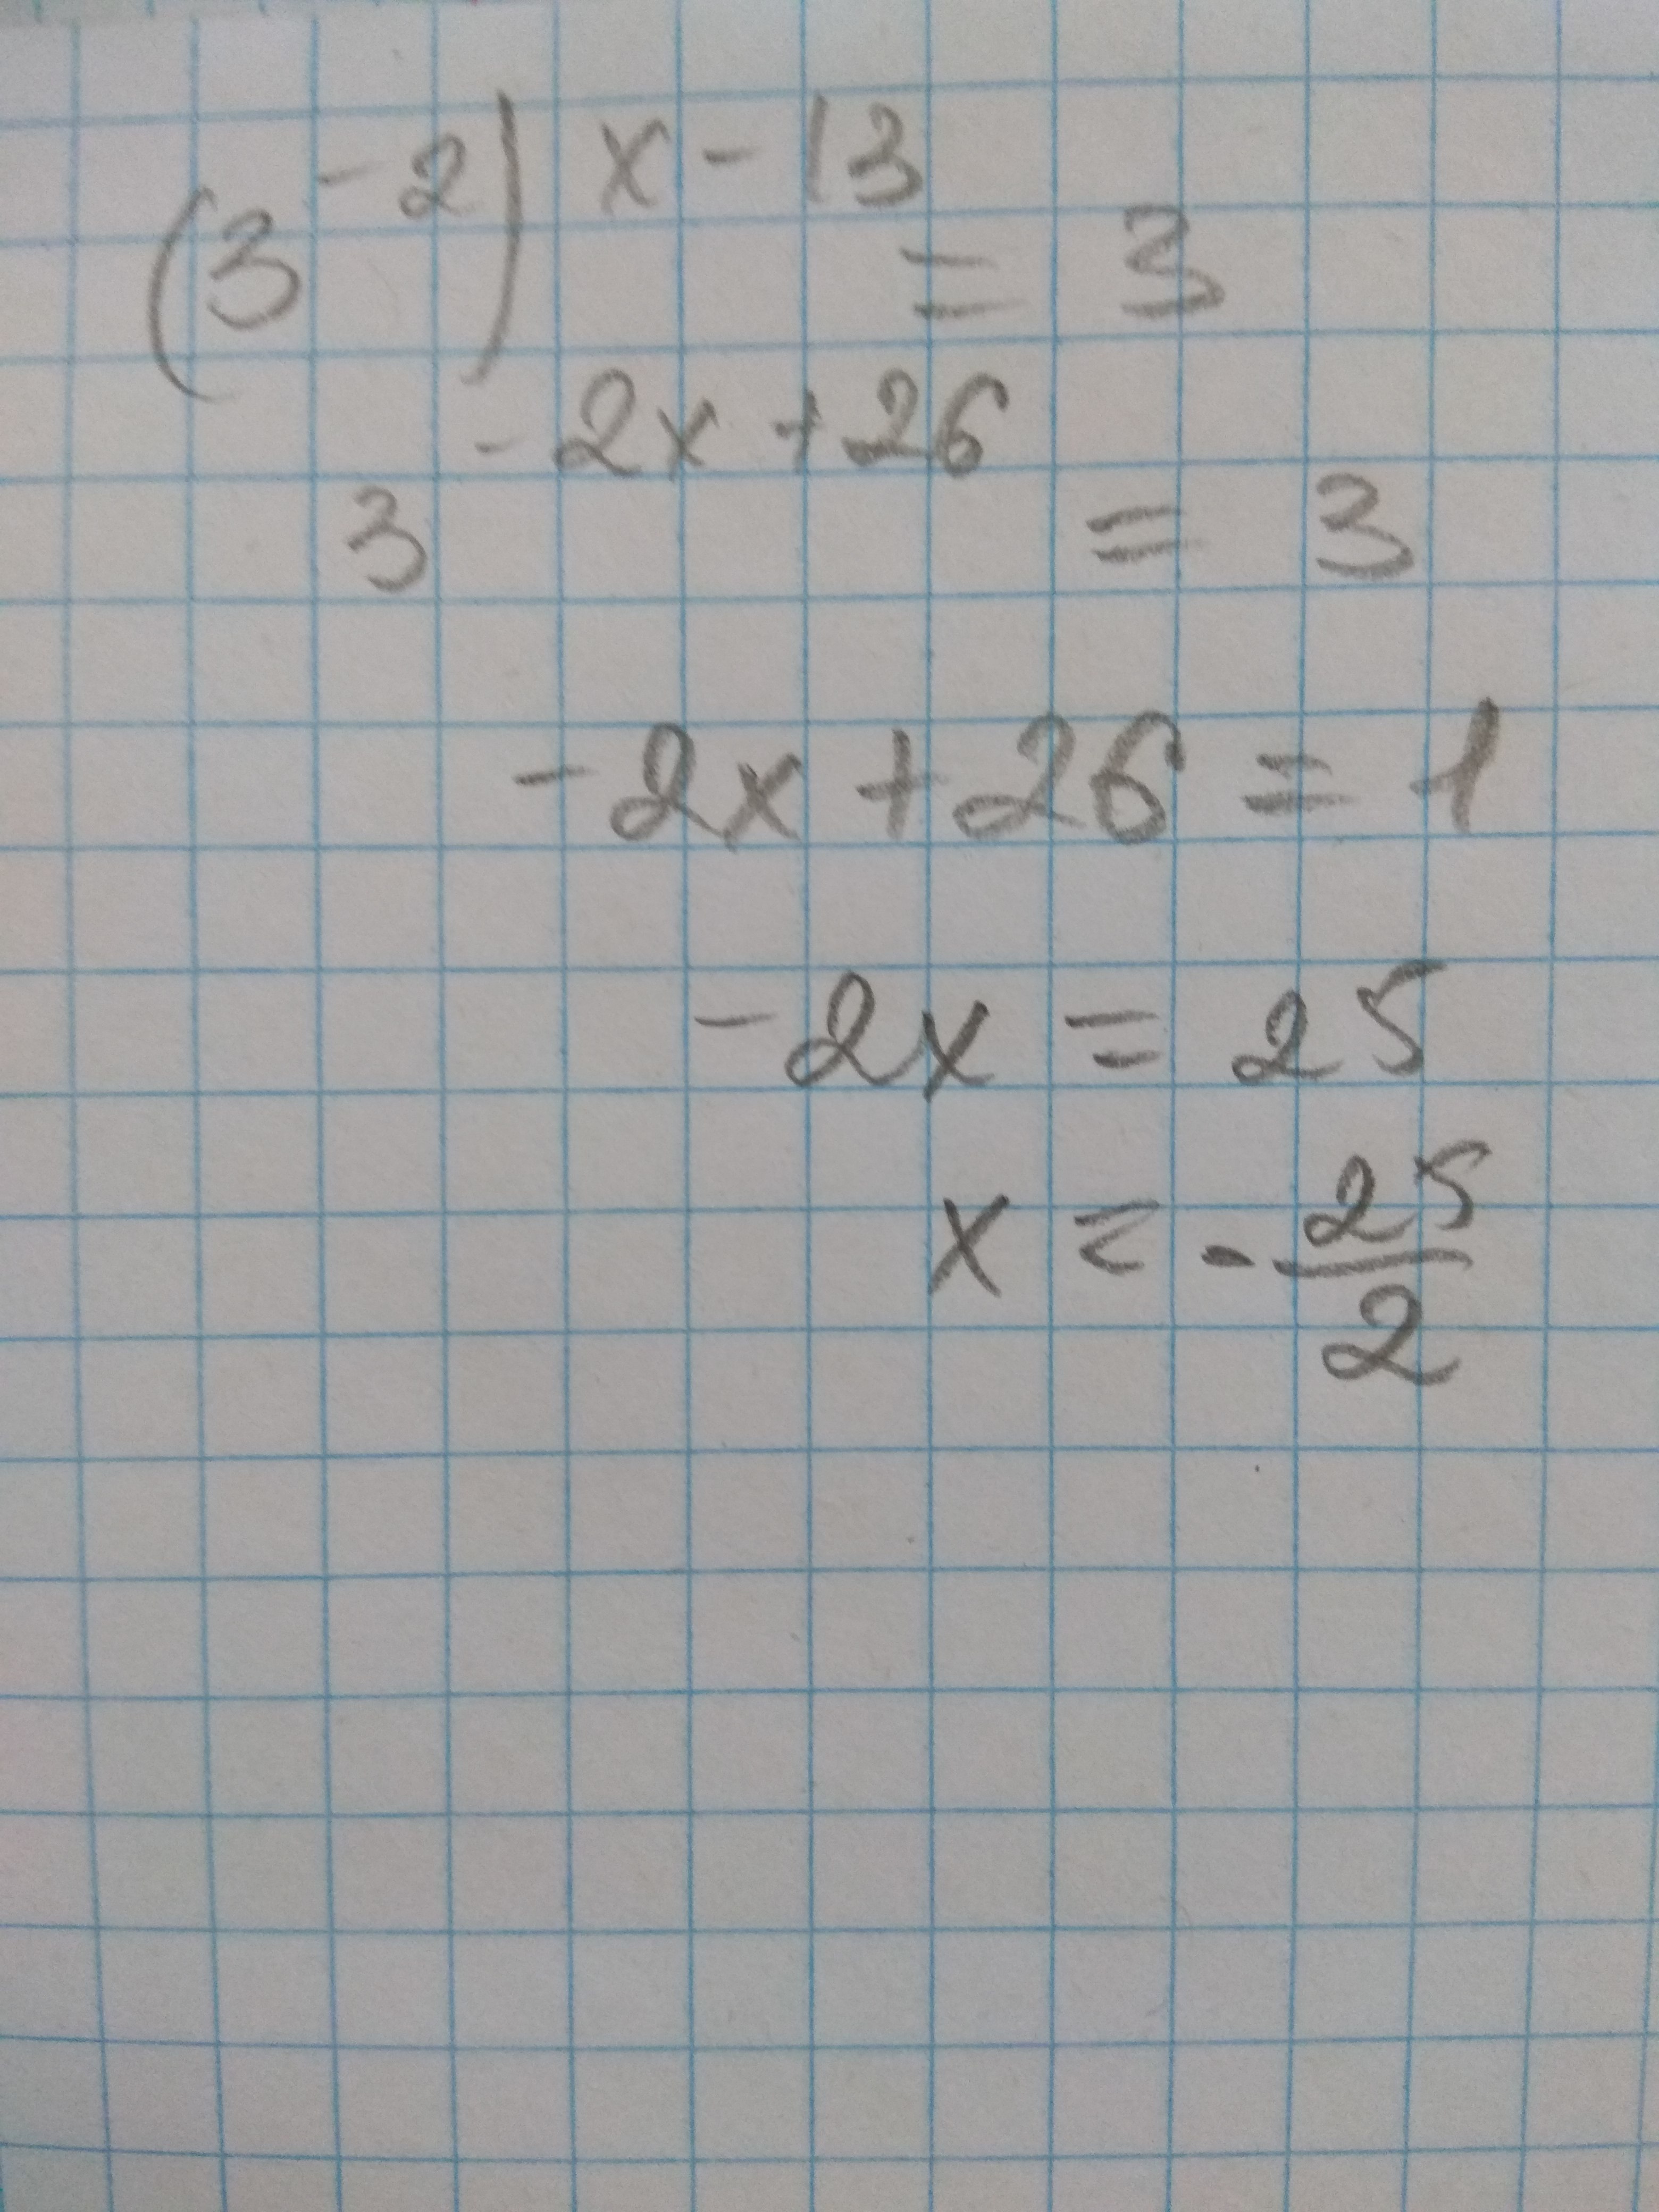 (3^{-2})^{x-13} = 3
3^{-2x+26} = 3
-2x+26=1
-2x = 25
x = -\frac{25}{2}